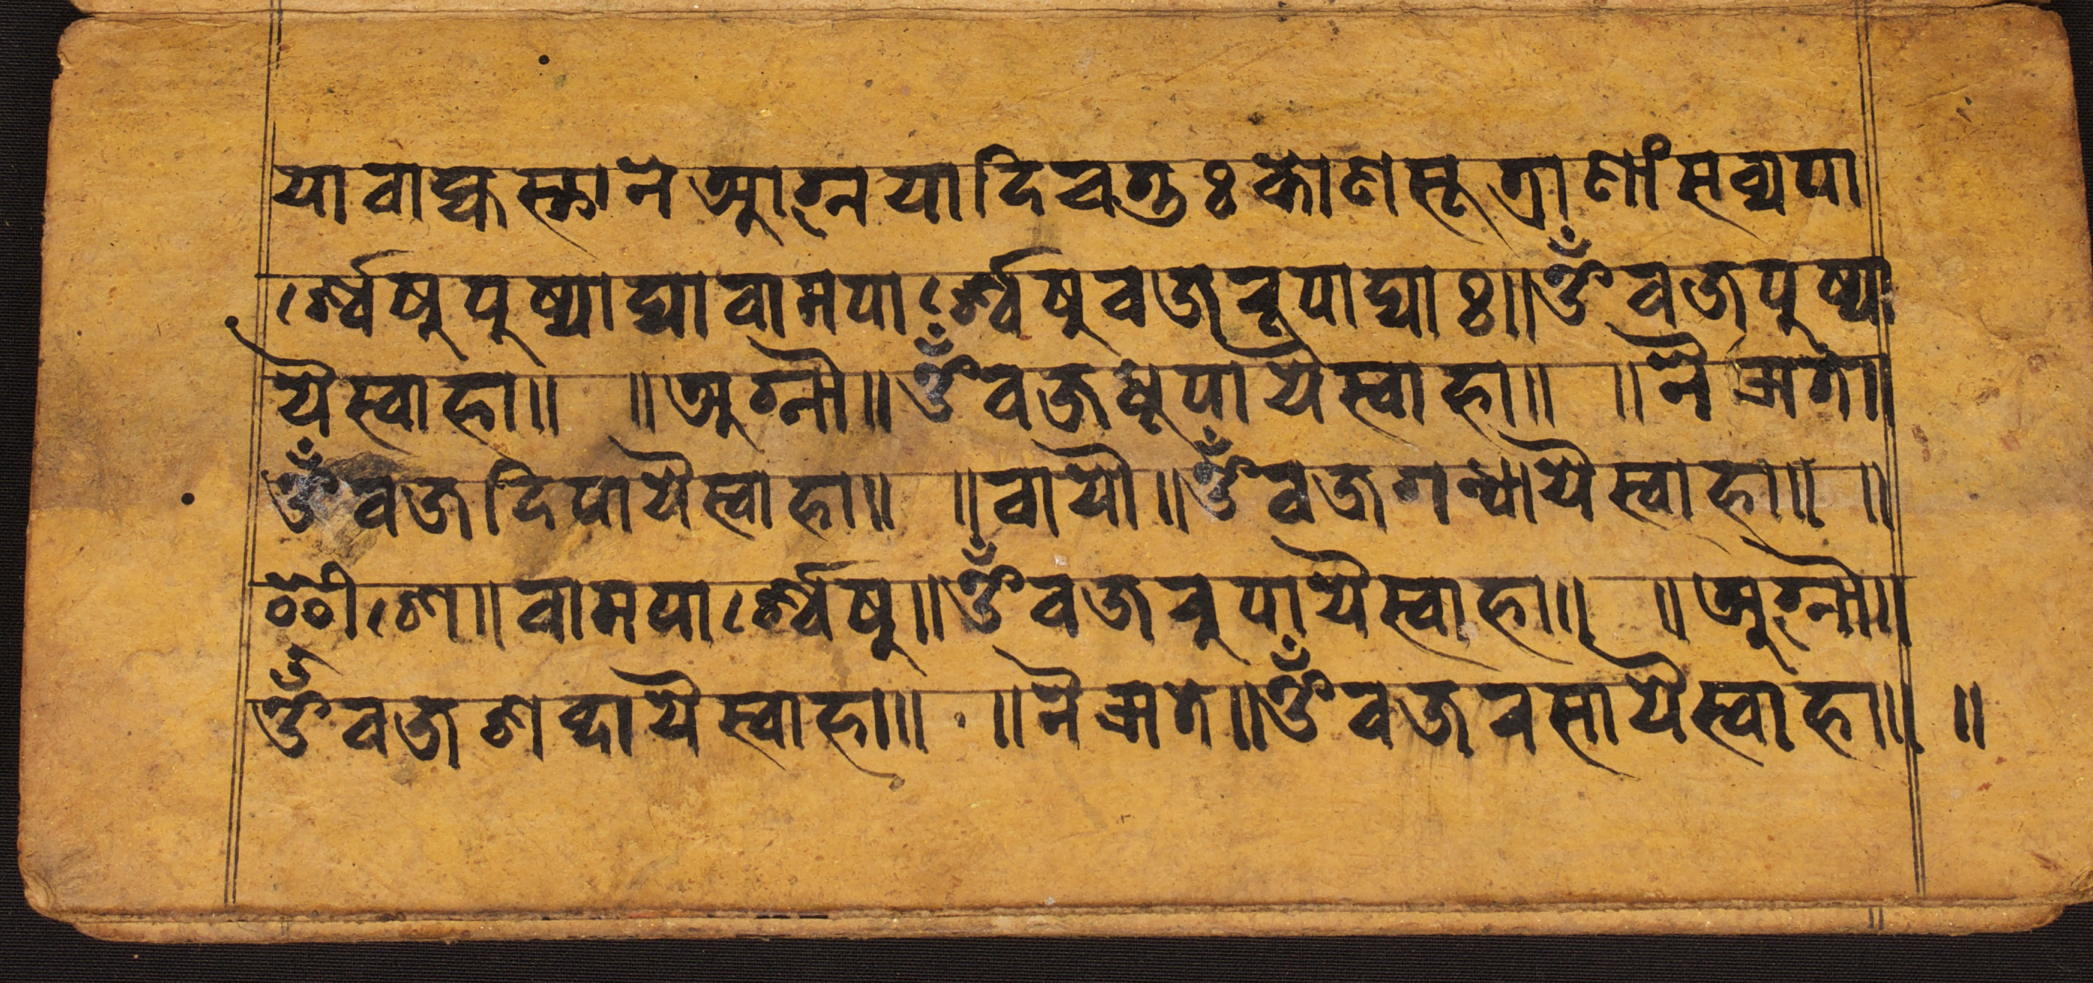 यावाह्यस्थाने आग्नयादिचतुः कोणसूत्राणां सव्यपा
र्श्वेषु पुष्पाद्या वामपार्श्वेषु वज्ररूपाद्याः॥ ॐ वज्रपुष्पा
यै स्वाहा॥ ॥ अग्नौ॥ ॐ वज्रधूपायै स्वाहा॥ ॥ नैऋते॥
ॐ वज्रदिपायै स्वाहा॥ ॥ वायौ॥ ॐ वज्रगन्धायै स्वाहा॥ ॥
ईशे॥ वामपार्श्वेषु॥ ॐ वज्ररुपायै स्वाहा॥ ॥ अग्नौ॥
ॐ वज्रशब्दायै स्वाहा॥ ॥ नैऋते॥ ॐ वज्ररसायै स्वाहा॥ ॥